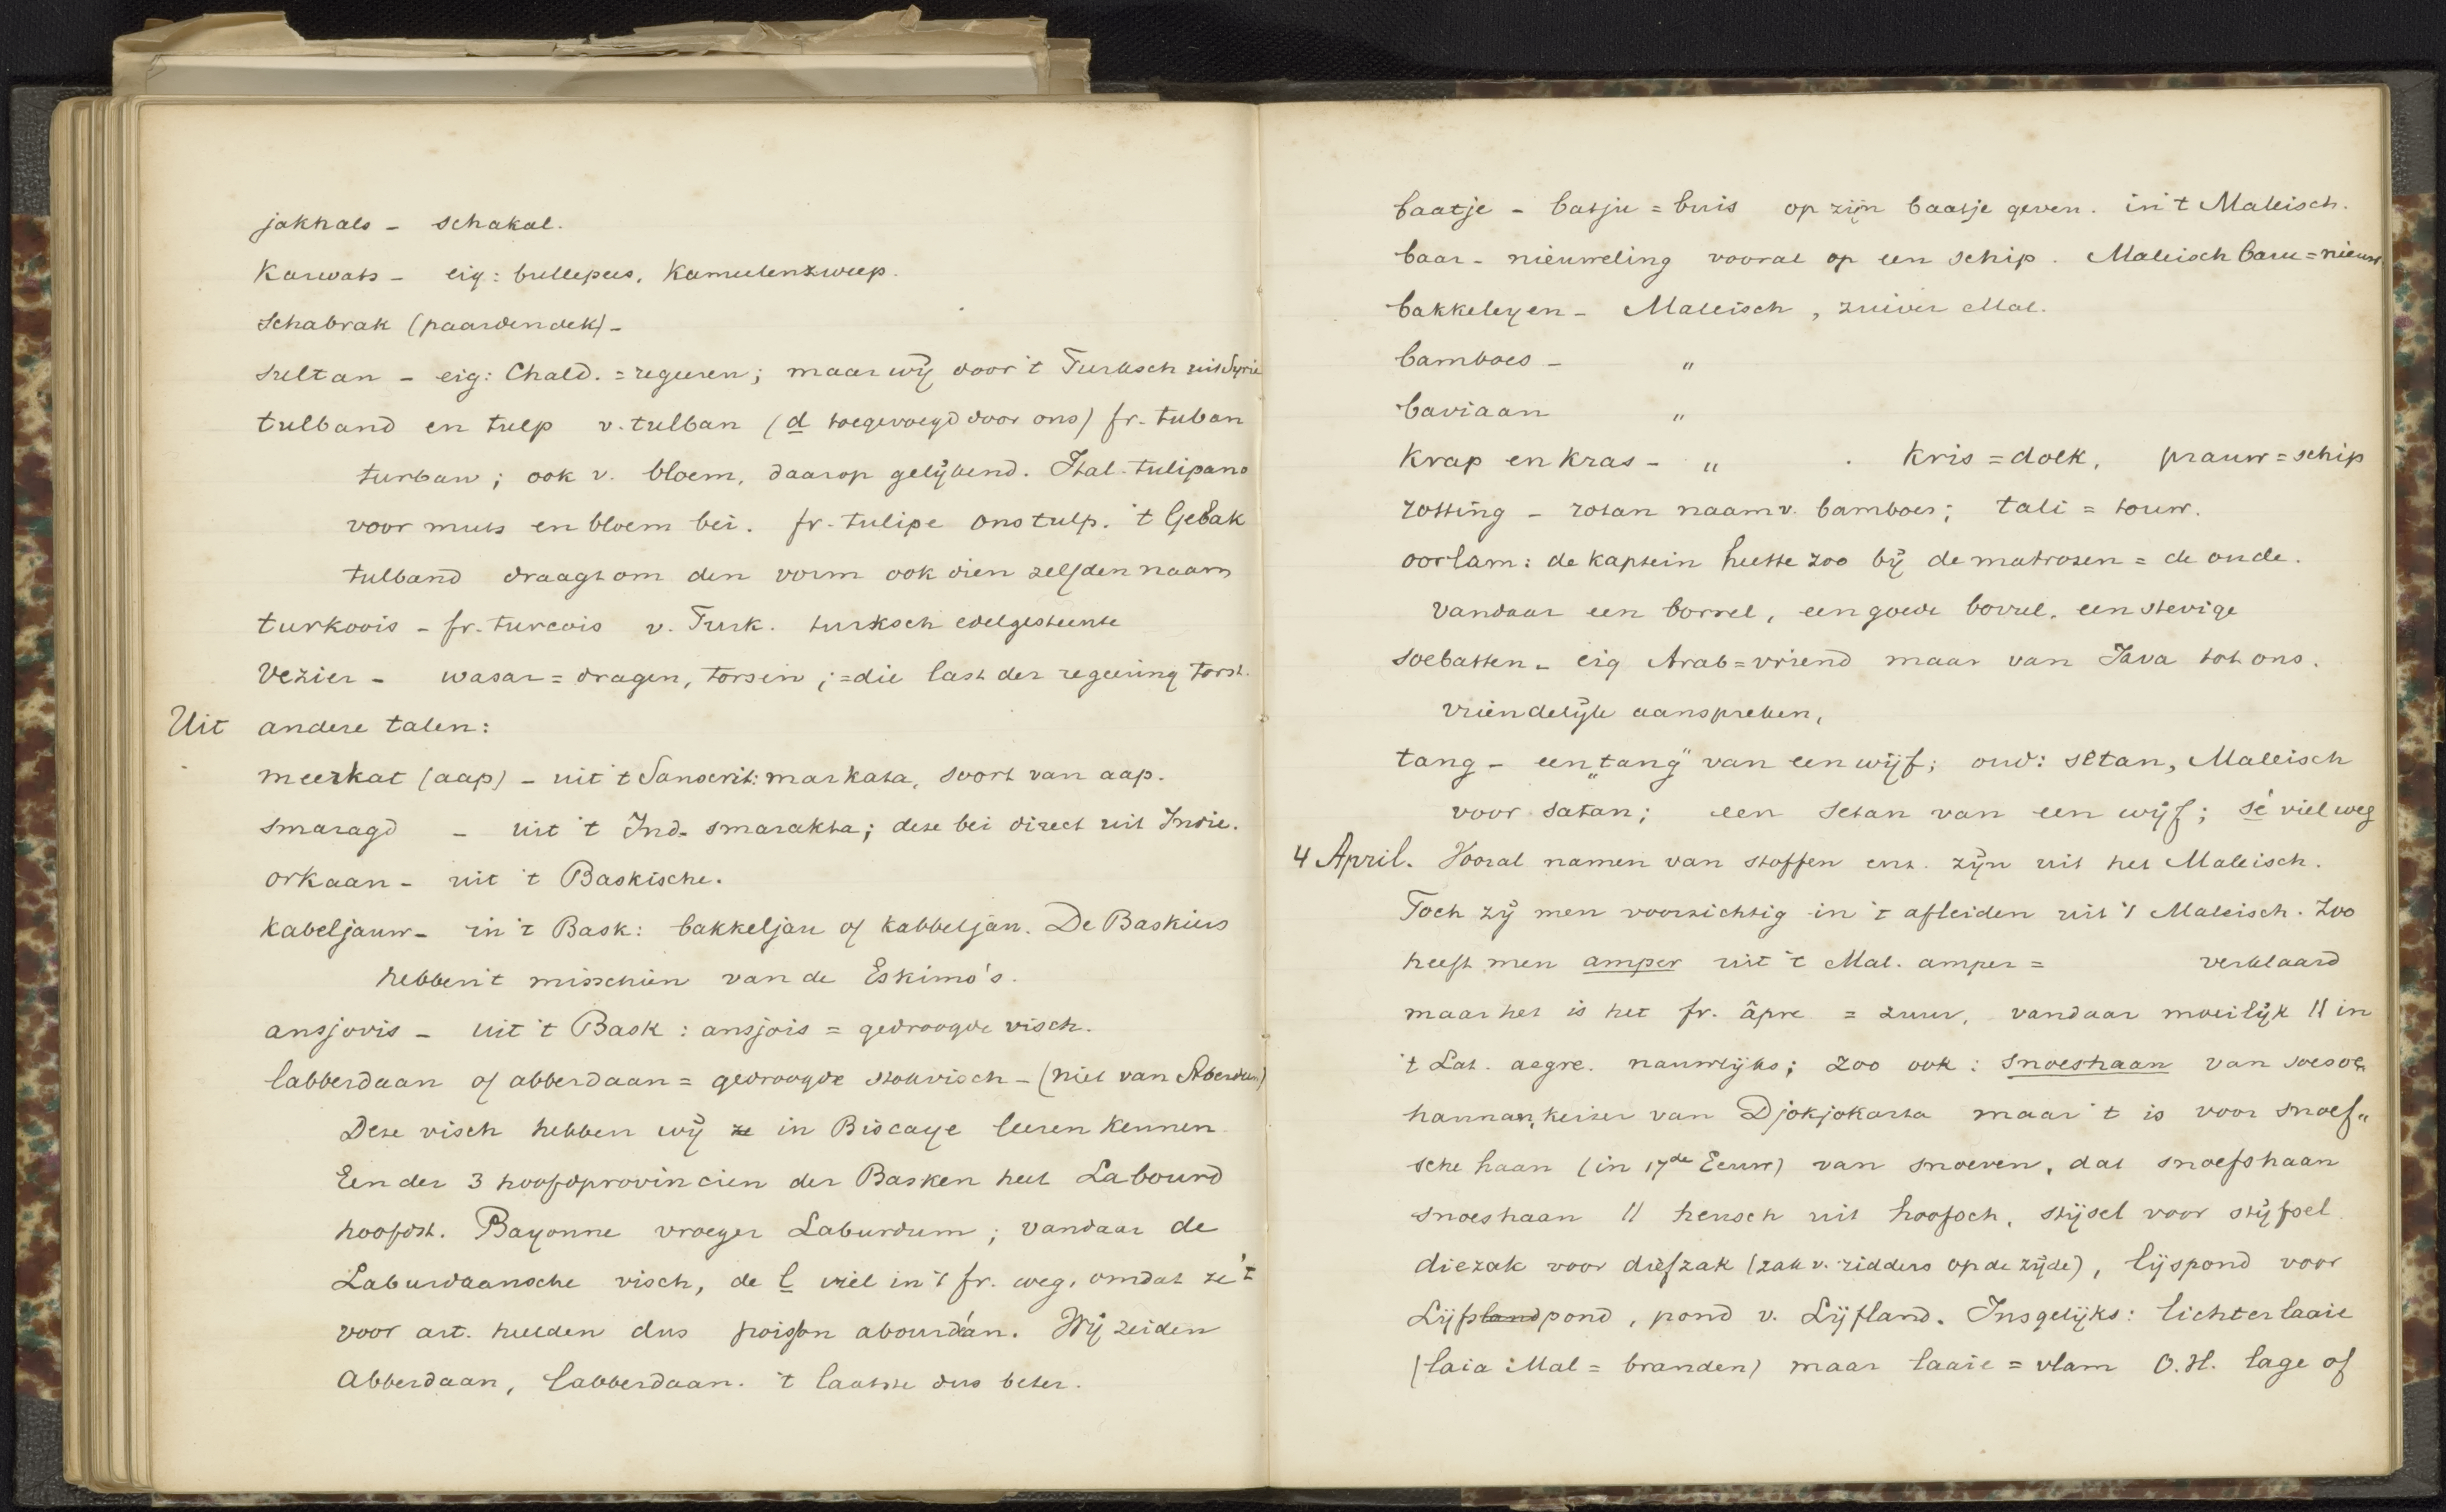 jakhals - schakal.
Karwats - eig: bullepees, Kameelenzweep.
Schabrak (paardendek) -
sultan - eig: Chald. = regeeren; maar wij door 't Turksch uit Syrie
tulband en tulp v. tulban (d toegevoegd door ons) fr. tuban
turban; ook v. bloem, daarop gelijkend. Ital. tulipano
voor muts en bloem bei. fr. tulipe ons tulp. 't Gebak
tulband draagt om den vorm ook dien zelfden naam
turkoois - fr. turcois v. Turk. turksch edelgesteente
Vezier - wasar = dragen, torsen; = die last der regeering torst.
Uit andere talen:
meerkat (aap) - uit 't Sanscrit: markata, soort van aap.
smaragd - uit 't Ind. smarakta; deze bei direct uit Indie.
orkaan - uit 't Baskische.
kabeljauw - in 't Bask: bakkeljau of kabbeljau. De Baskiers
hebben 't misschien van de Eskimo's.
ansjovis - uit 't Bask: ansjois = gedroogde visch.
labberdaan of abberdaan = gedroogde stokvisch - (niet van Aberdeen)
Deze visch hebben wij ze in Biscaye leeren kennen
Een der 3 hoofdprovincien der Basken heet Labourd
hoofdst. Bayonne vroeger Laburdum; vandaar de
Laburdaansche visch, de l viel in 't fr. weg, omdat ze 't
voor art. hielden dus poisson abourdán. Wij zeiden
Abberdaan, labberdaan. 't laatste dus beter.
baatje - batju = buis op zijn baatje geven. in 't Maleisch.
baar - nieuweling vooral op een schip. Maleisch baru = nieuw.
bakkeleyen - Maleisch, zuiver Mal.
bamboes - "
baviaan "
Krap en kras - " . kris = dolk, prauw = schip
rotting - rotan naam v. bamboes; tali = touw.
oorlam: de kaptein heette zoo bij de matrozen = de oude.
vandaar een borrel, een goede borrel, een stevige
soebatten - eig Arab = vriend maar van Java tot ons.
vriendelijk aanspreken,
tang - een "tang" van een wijf; oud: setan, Maleisch
voor satan; een setan van een wijf; sé viel weg
4 April. Vooral namen van stoffen enz. zijn uit het Maleisch.
Toch zij men voorzichtig in 't afleiden uit 't Maleisch. Zoo
heeft men amper uit 't Mal. amper = verklaard
maar het is het fr. âpre = zuur, vandaar moeilijk // in
't Lat. aegre. nauwlijks; zoo ook: snoeshaan van soesoe
hannan, keizer van Djokjokarta maar 't is voor snoef"
sche haan (in 17de Eeuw) van snoeven, dat snoefshaan
snoeshaan // heusch uit hoofsch, stijsel voor stijfsel.
diezak voor diefzak (zak v. ridders op de zijde), lijspond voor
Lijfslandpond, pond v. Lijfland. Insgelijks: lichterlaaie
(laia Mal = branden) maar laaie = vlam O.H. lage of